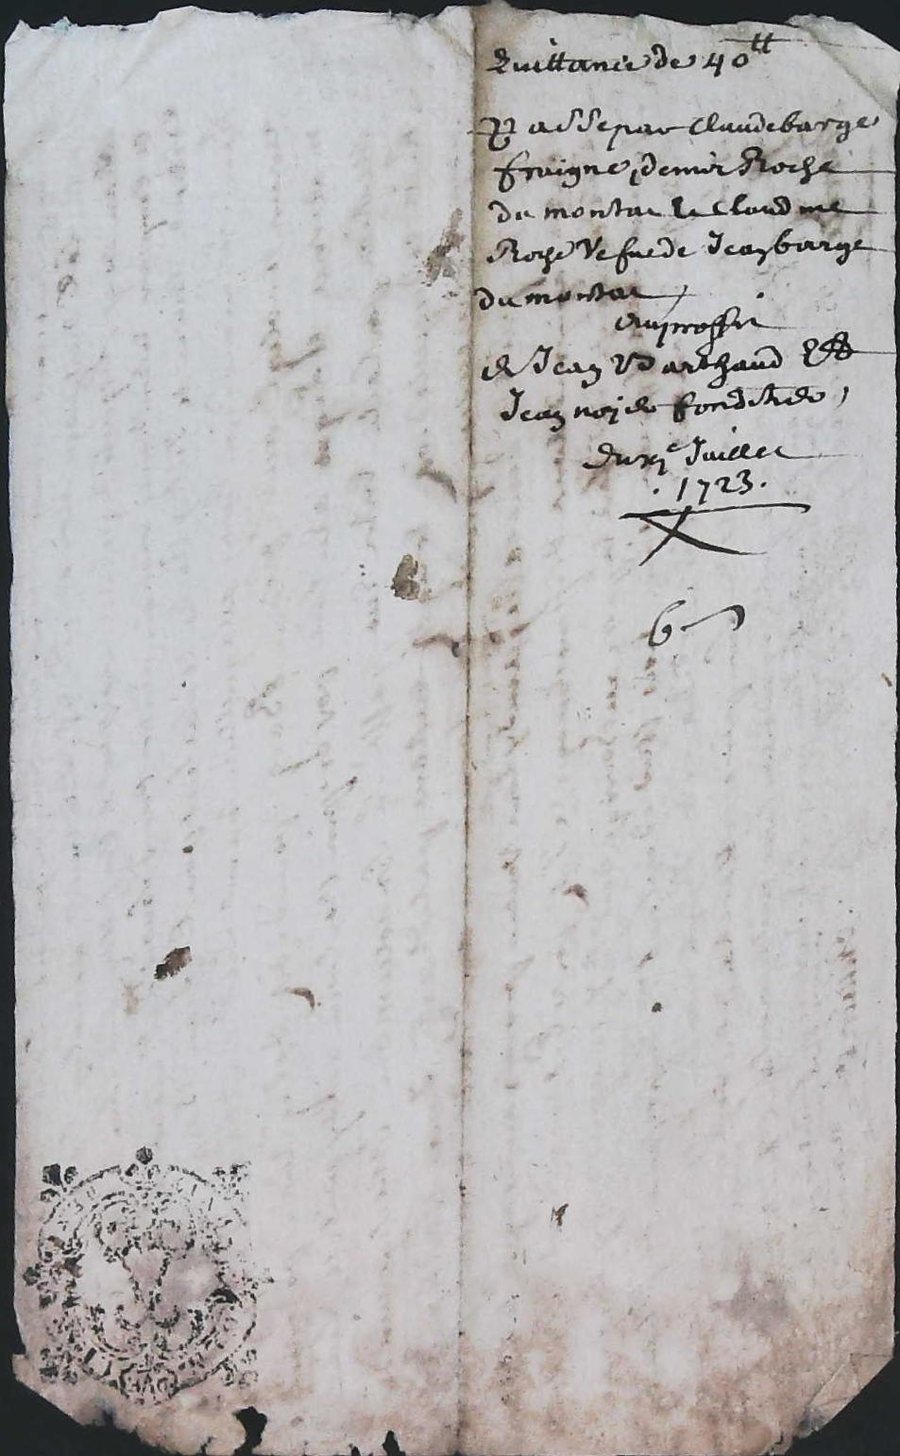 Quittance de 40ᵗᵗ
Passe par Claude barge
fraigne, denis Roche
du montar & Claudine
Roche Vefue de Jean barge
du montar
Au proffit
de Jean Marchaud &
Jean
du xjᵉ Juillet
. 1723 .
6